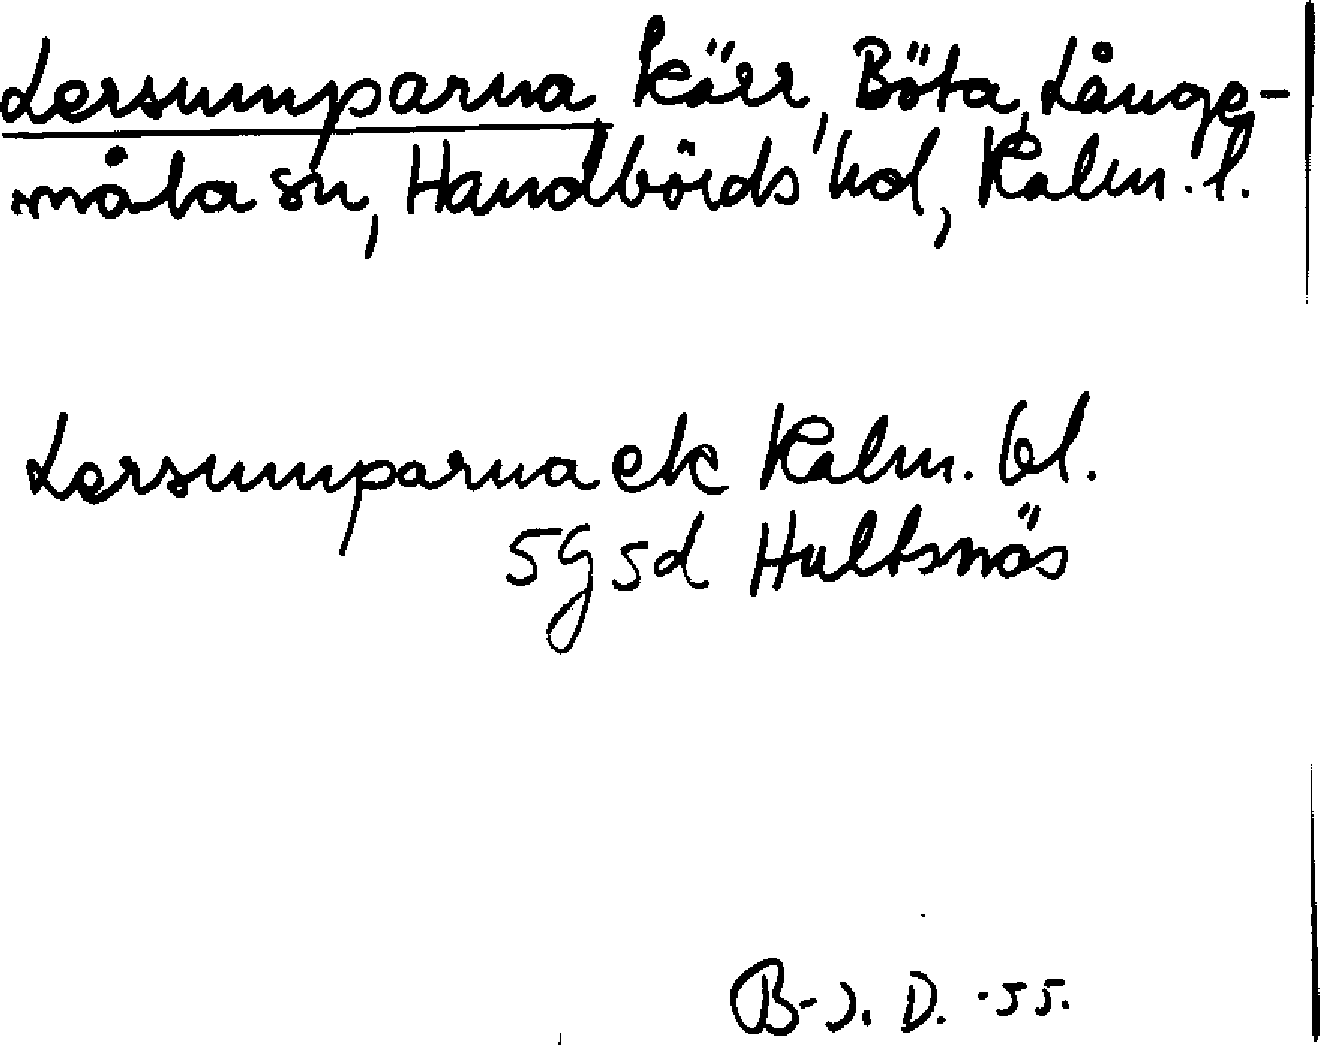 Lersumparna kärr, Böta, Långe-
måla sn, Handbörds hd, Kalm. l.
Lersumparna ek Kalm. bl.
5g5d Hultsnäs
B-J. D. -55.